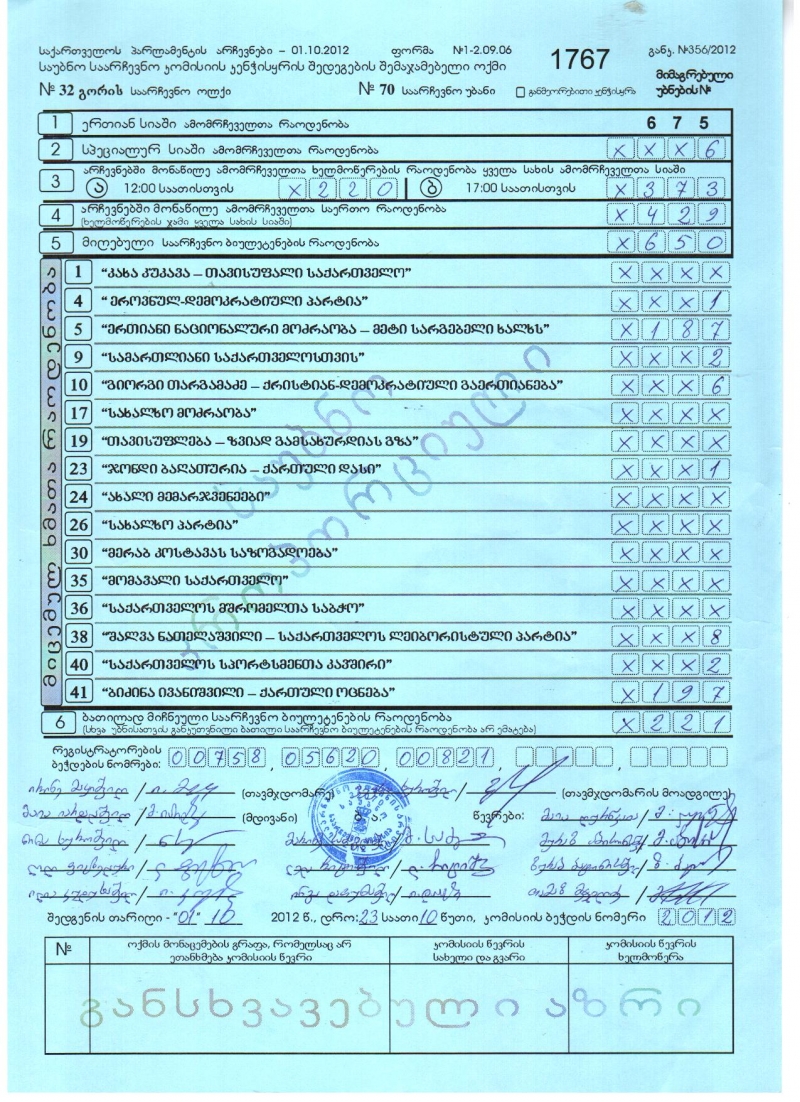 საქართველოს პარლამენტის არჩევნები – 01.10.2012 ფორმა №1-2.09.06 1767 განკ. №356/2012
საუბნო საარჩევნო კომისიის კენჭისყრის შედეგების შემაჯამებელი ოქმი
მიმაგრებული
№ 32 გორის საარჩევნო ოლქი № 70 საარჩევნო უბანი განმეორებითი კენჭისყრა უბნების №
1 ერთიან სიაში ამომრჩეველთა რაოდენობა 6 7 5
2 სპეციალურ სიაში ამომრჩეველთა რაოდენობა X X X 6
3 არჩევნებში მონაწილე ამომრჩეველთა ხელმოწერების რაოდენობა ყველა სახის ამომრჩეველთა სიაში
ა 12:00 საათისთვის X 2 2 0 ბ 17:00 საათისთვის X 3 7 3
4 არჩევნებში მონაწილე ამომრჩეველთა საერთო რაოდენობა X 4 2 9
(ხელმოწერების ჯამი ყველა სახის სიაში)
5 მიღებული საარჩევნო ბიულეტენების რაოდენობა X 6 5 0
მიცემულ ხმათა რაოდენობა
1 “კახა კუკავა – თავისუფალი საქართველო” X X X X
4 “ ეროვნულ-დემოკრატიული პარტია” X X X 1
5 “ერთიანი ნაციონალური მოძრაობა – მეტი სარგებელი ხალხს” X 1 8 7
9 “სამართლიანი საქართველოსთვის” X X X 2
10 “გიორგი თარგამაძე – ქრისტიან-დემოკრატიული გაერთიანება” X X X 6
17 “სახალხო მოძრაობა” X X X X
19 “თავისუფლება – ზვიად გამსახურდიას გზა” X X X X
23 “ჯონდი ბაღათურია – ქართული დასი” X X X 1
24 “ახალი მემარჯვენეები” X X X X
26 “სახალხო პარტია” X X X X
30 “მერაბ კოსტავას საზოგადოება” X X X X
35 “მომავალი საქართველო” X X X X
36 “საქართველოს მშრომელთა საბჭო” X X X X
38 “შალვა ნათელაშვილი – საქართველოს ლეიბორისტული პარტია” X X X 8
40 “საქართველოს სპორტსმენთა კავშირი” X X X 2
41 “ბიძინა ივანიშვილი – ქართული ოცნება” X 1 9 7
საუბნო
პროპორციული
6 ბათილად მიჩნეული საარჩევნო ბიულეტენების რაოდენობა X 2 2 1
(სხვა უბნისათვის განკუთვნილი ბათილი საარჩევნო ბიულეტენების რაოდენობა არ ემატება)
რეგისტრატორების
ბეჭდების ნომრები: 00758, 05620, 00821,
(თავმჯდომარე) (თავმჯდომარის მოადგილე)
(მდივანი) ბ. ა. წევრები:
შედგენის თარიღი - “01” 10 2012 წ., დრო: 23 საათი 10 წუთი, კომისიის ბეჭდის ნომერი 2012
№ ოქმის მონაცემების გრაფა, რომელსაც არ კომისიის წევრის კომისიის წევრის
ეთანხმება კომისიის წევრი სახელი და გვარი ხელმოწერა
განსხვავებული აზრი